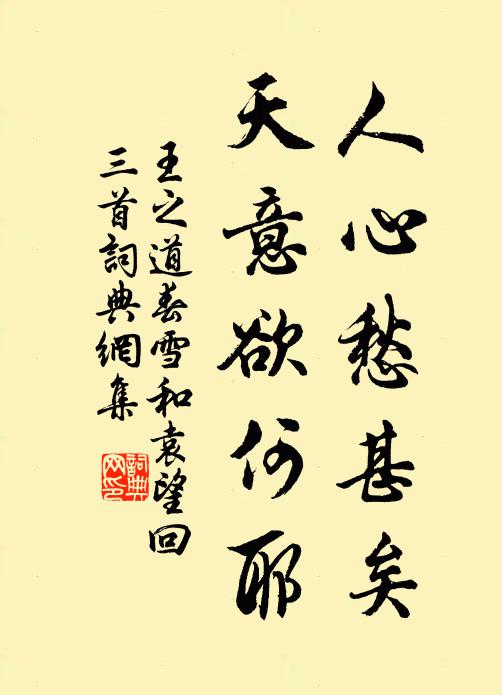 人心愁甚矣
天意欲何耶
王之道春雪和袁望回
三首詞典網集
詞典網印